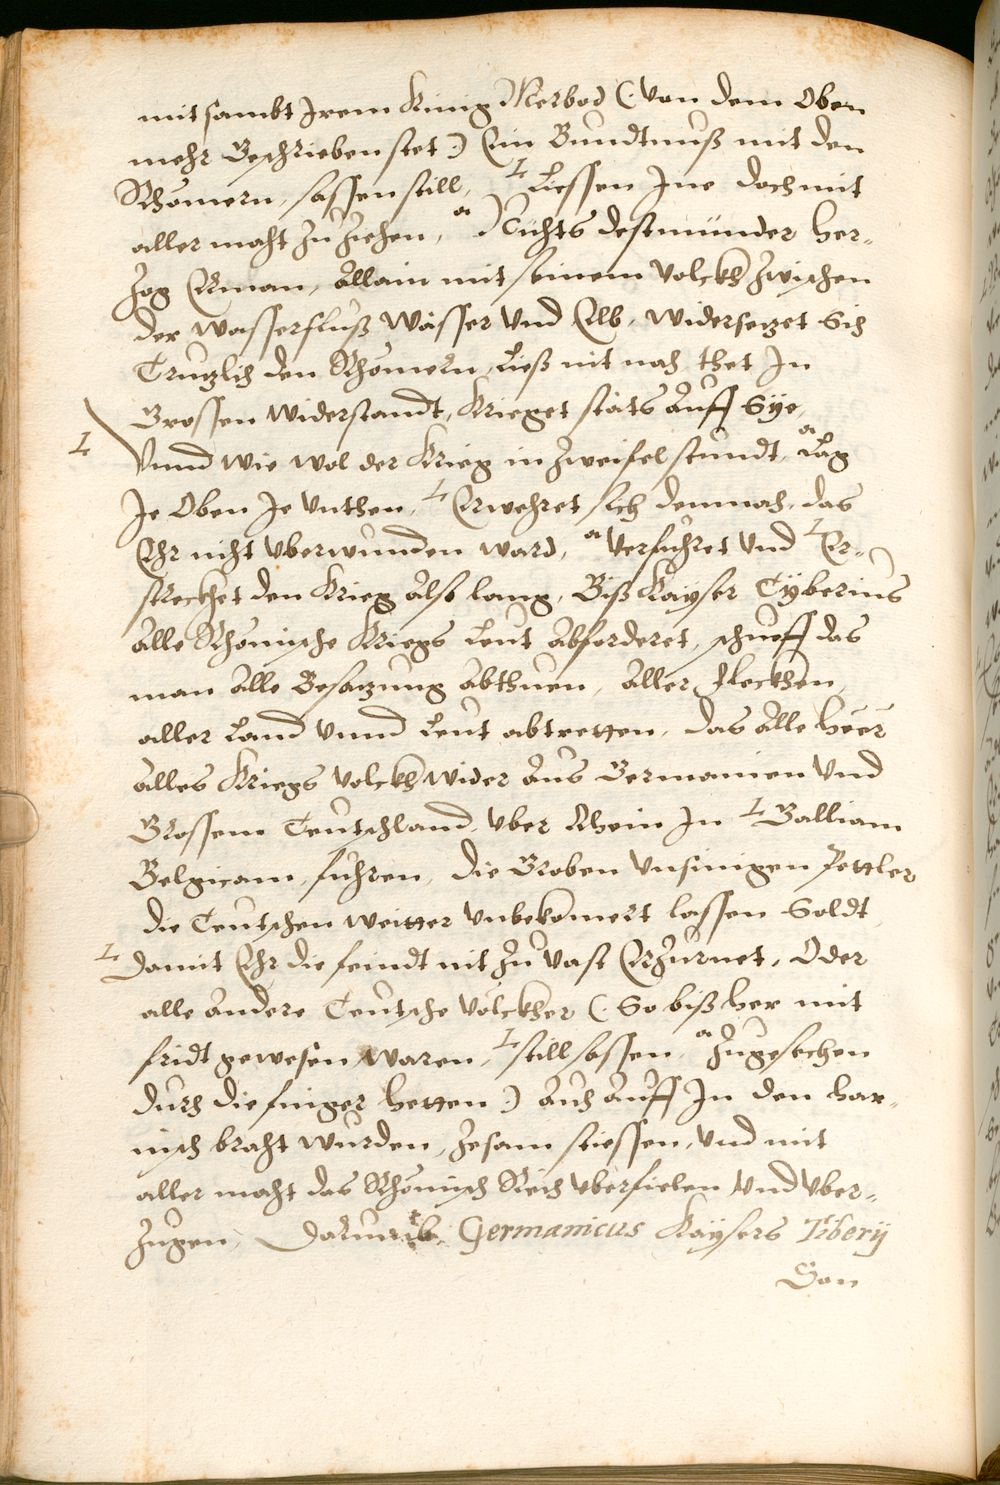 mitsambt Irem König Merbod (: von dem Oben
mehr Beschrieben stet :) Ein Bundtnuß mit den
Rhömern, sassen still, L Liessen Ine doch mit
aller macht zu ziehen, a Nichts destmünder her-
zog Erman, allain mit seinem volckh zwischen
der wasserfluß Wässer vnd Elb, widersezet Sich
Truzlich den Rhömern, Ließ nit nach, thet In
Grossen widerstandt, Krieget stäts Auff Sye,
L Vnnd wie wol der Krieg in zweifel stundt, a Lag
Je Oben Je vnthen, L Erwehret sich dennoch, das
Ehr nicht vberwunden ward, a verfuhret vnd L Er-
streckhet den Krieg also lang, Biß Kayser Tyberius
Alle Rhömische Kriegs Leut Abforderet, schueff das
man Alle Besazung Abthuen, Aller Fleckhen,
aller Land vnnd Leut abtretten, das Alle heer
Alles Kriegs volckh wider Aus Germanien vnd
Grossem Teutschland, vber Rhein In L Galliam
Belgicam, fuhren, die Groben vnsinigen Pettler
die Teutschen weitter vnbekomert lassen Soldt,
L damit Ehr die feindt nit zu vast Erzurnet, Oder
alle Andere Teutsche völckher (: So bißher mit
fridt gewesen waren, L still sassen, a zugesechen
durch die finger hetten :) Auch Auff In den har-
nisch bracht wurden, zesam stiessen, vnd mit
aller macht das Rhömisch Reich vberfielen vnd vber-
zugen, Germanicus Kaysers Tibery
Son